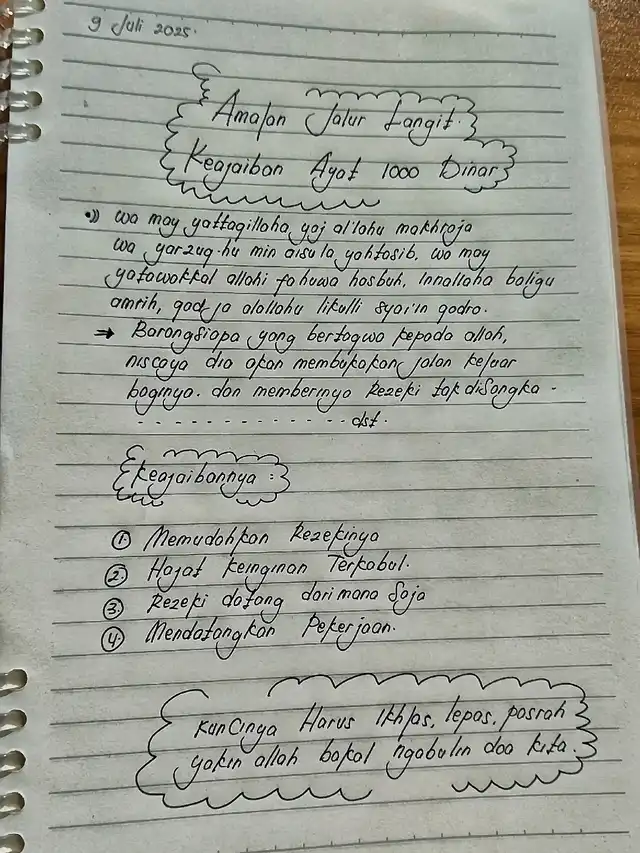 9 Juli 2025.
Amalan Jalur Langit.
Keajaiban Ayat 1000 Dinar
wa may yattaqillaha yaj al'lahu makhroja
wa yarzuq-hu min aisu la yahtasib. wa may
yatawakkal allahi fahuwa hasbuh, Innallaha baligu
amrih, qad ja alallahu likulli syai'in qadra.
⇒ Barangsiapa yang bertaqwa kepada allah,
niscaya dia akan membukakan jalan keluar
baginya. dan memberinya Rezeki tak disangka -
- - - - - - - - - - - - - dst.
Keajaibannya :
1. Memudahkan Rezekinya
2. Hajat keinginan Terkabul.
3. Rezeki datang dari mana Saja
4. Mendatangkan Pekerjaan.
Kuncinya Harus Ikhlas, lepas, pasrah
yakin allah bakal ngabulin doa kita.